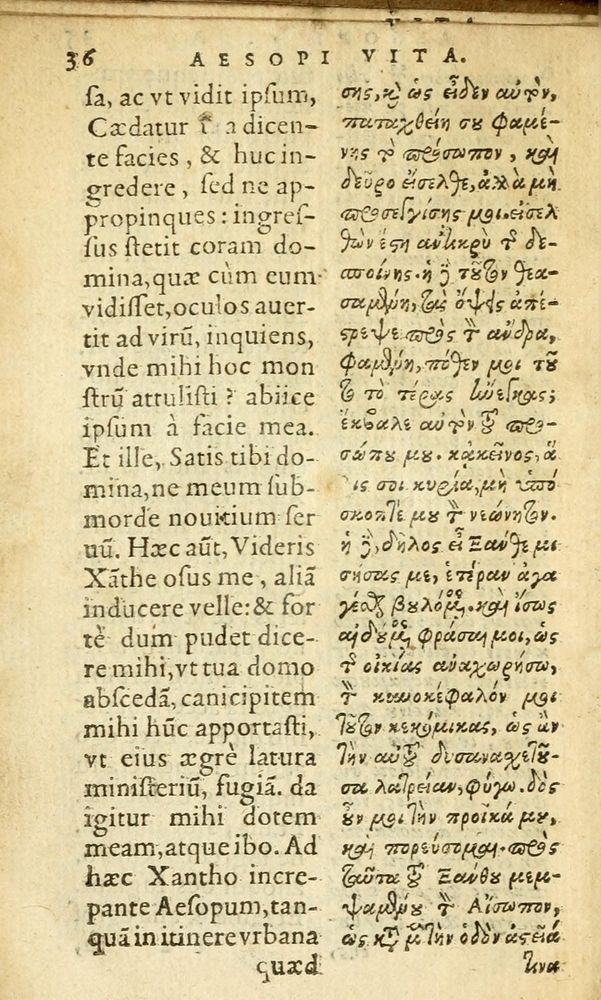 36 AESOPI VITA.
ſa, ac vt vidit ipſum,
Cædatur a dicen-
te facies, & huc in-
gredere, ſed ne ap-
propinques: ingreſ-
ſus ſtetit coram do-
mina, quæ cùm eum
vidiſſet, oculos auer-
tit ad virũ, inquiens,
vnde mihi hoc mon
ſtrũ attuliſti? abiice
ipſum à facie mea.
Et ille, Satis tibi do-
mina, ne meum ſub-
morde nouitium ſer
uũ. Hæc aũt, Videris
Xãthe oſus me, aliã
inducere velle: & for
tè dum pudet dice-
re mihi, vt tua domo
abſcedã, canicipitem
mihi hũc apportaſti,
vt eius ægrè latura
miniſteriũ, fugiã. da
igitur mihi dotem
meam, atque ibo. Ad
hæc Xantho incre-
pante Aeſopum, tan-
quã in itinere vrbana
quæd
σης, καὶ ὡς εἶδεν αὐτὸν,
παταχθείη σου φαμέ-
νης τὸ πρόσωπον, καὶ
δεῦρο εἴσελθε, ἀλλὰ μὴ
προσεγγίσης μοι. εἰσελ
θὼν ἔστη ἀντικρὺ τῆς δε-
σποίνης. ἡ δὲ τοῦτον θεα-
σαμένη, τὰς ὄψεις ἀπέ-
στρεψε πρὸς τὸν ἄνδρα,
φαμένη, πόθεν μοι τοῦ
το τὸ τέρας ἤνεγκας;
ἔκβαλε αὐτὸν τοῦ προ-
σώπου μου. κἀκεῖνος, ἅ
λις σοι κυρία, μὴ ὑπό
σκοπτέ μου τὸν νεώνητον.
ἡ δὲ, δῆλος εἶ Ξάνθε μι
σήσας με, ἑτέραν ἀγα
γέσθαι βουλόμενος. καὶ ἴσως
αἰδούμενος φράσαι μοι, ὡς
τῆς οἰκίας ἀναχωρήσω,
τὸν κυνοκέφαλόν μοι
τοῦτον κεκόμικας, ὡς ἂν
τὴν αὐτοῦ δυσανασχετοῦ-
σα λατρείαν, φύγω. δὸς
οὖν μοι τὴν προῖκά μου,
καὶ πορεύσομαι. πρὸς
ταῦτα τοῦ Ξάνθου μεμ-
ψαμένου τὸν Αἴσωπον,
ὡς κατὰ μὲν τὴν ὁδὸν ἀστεῖά
τινα